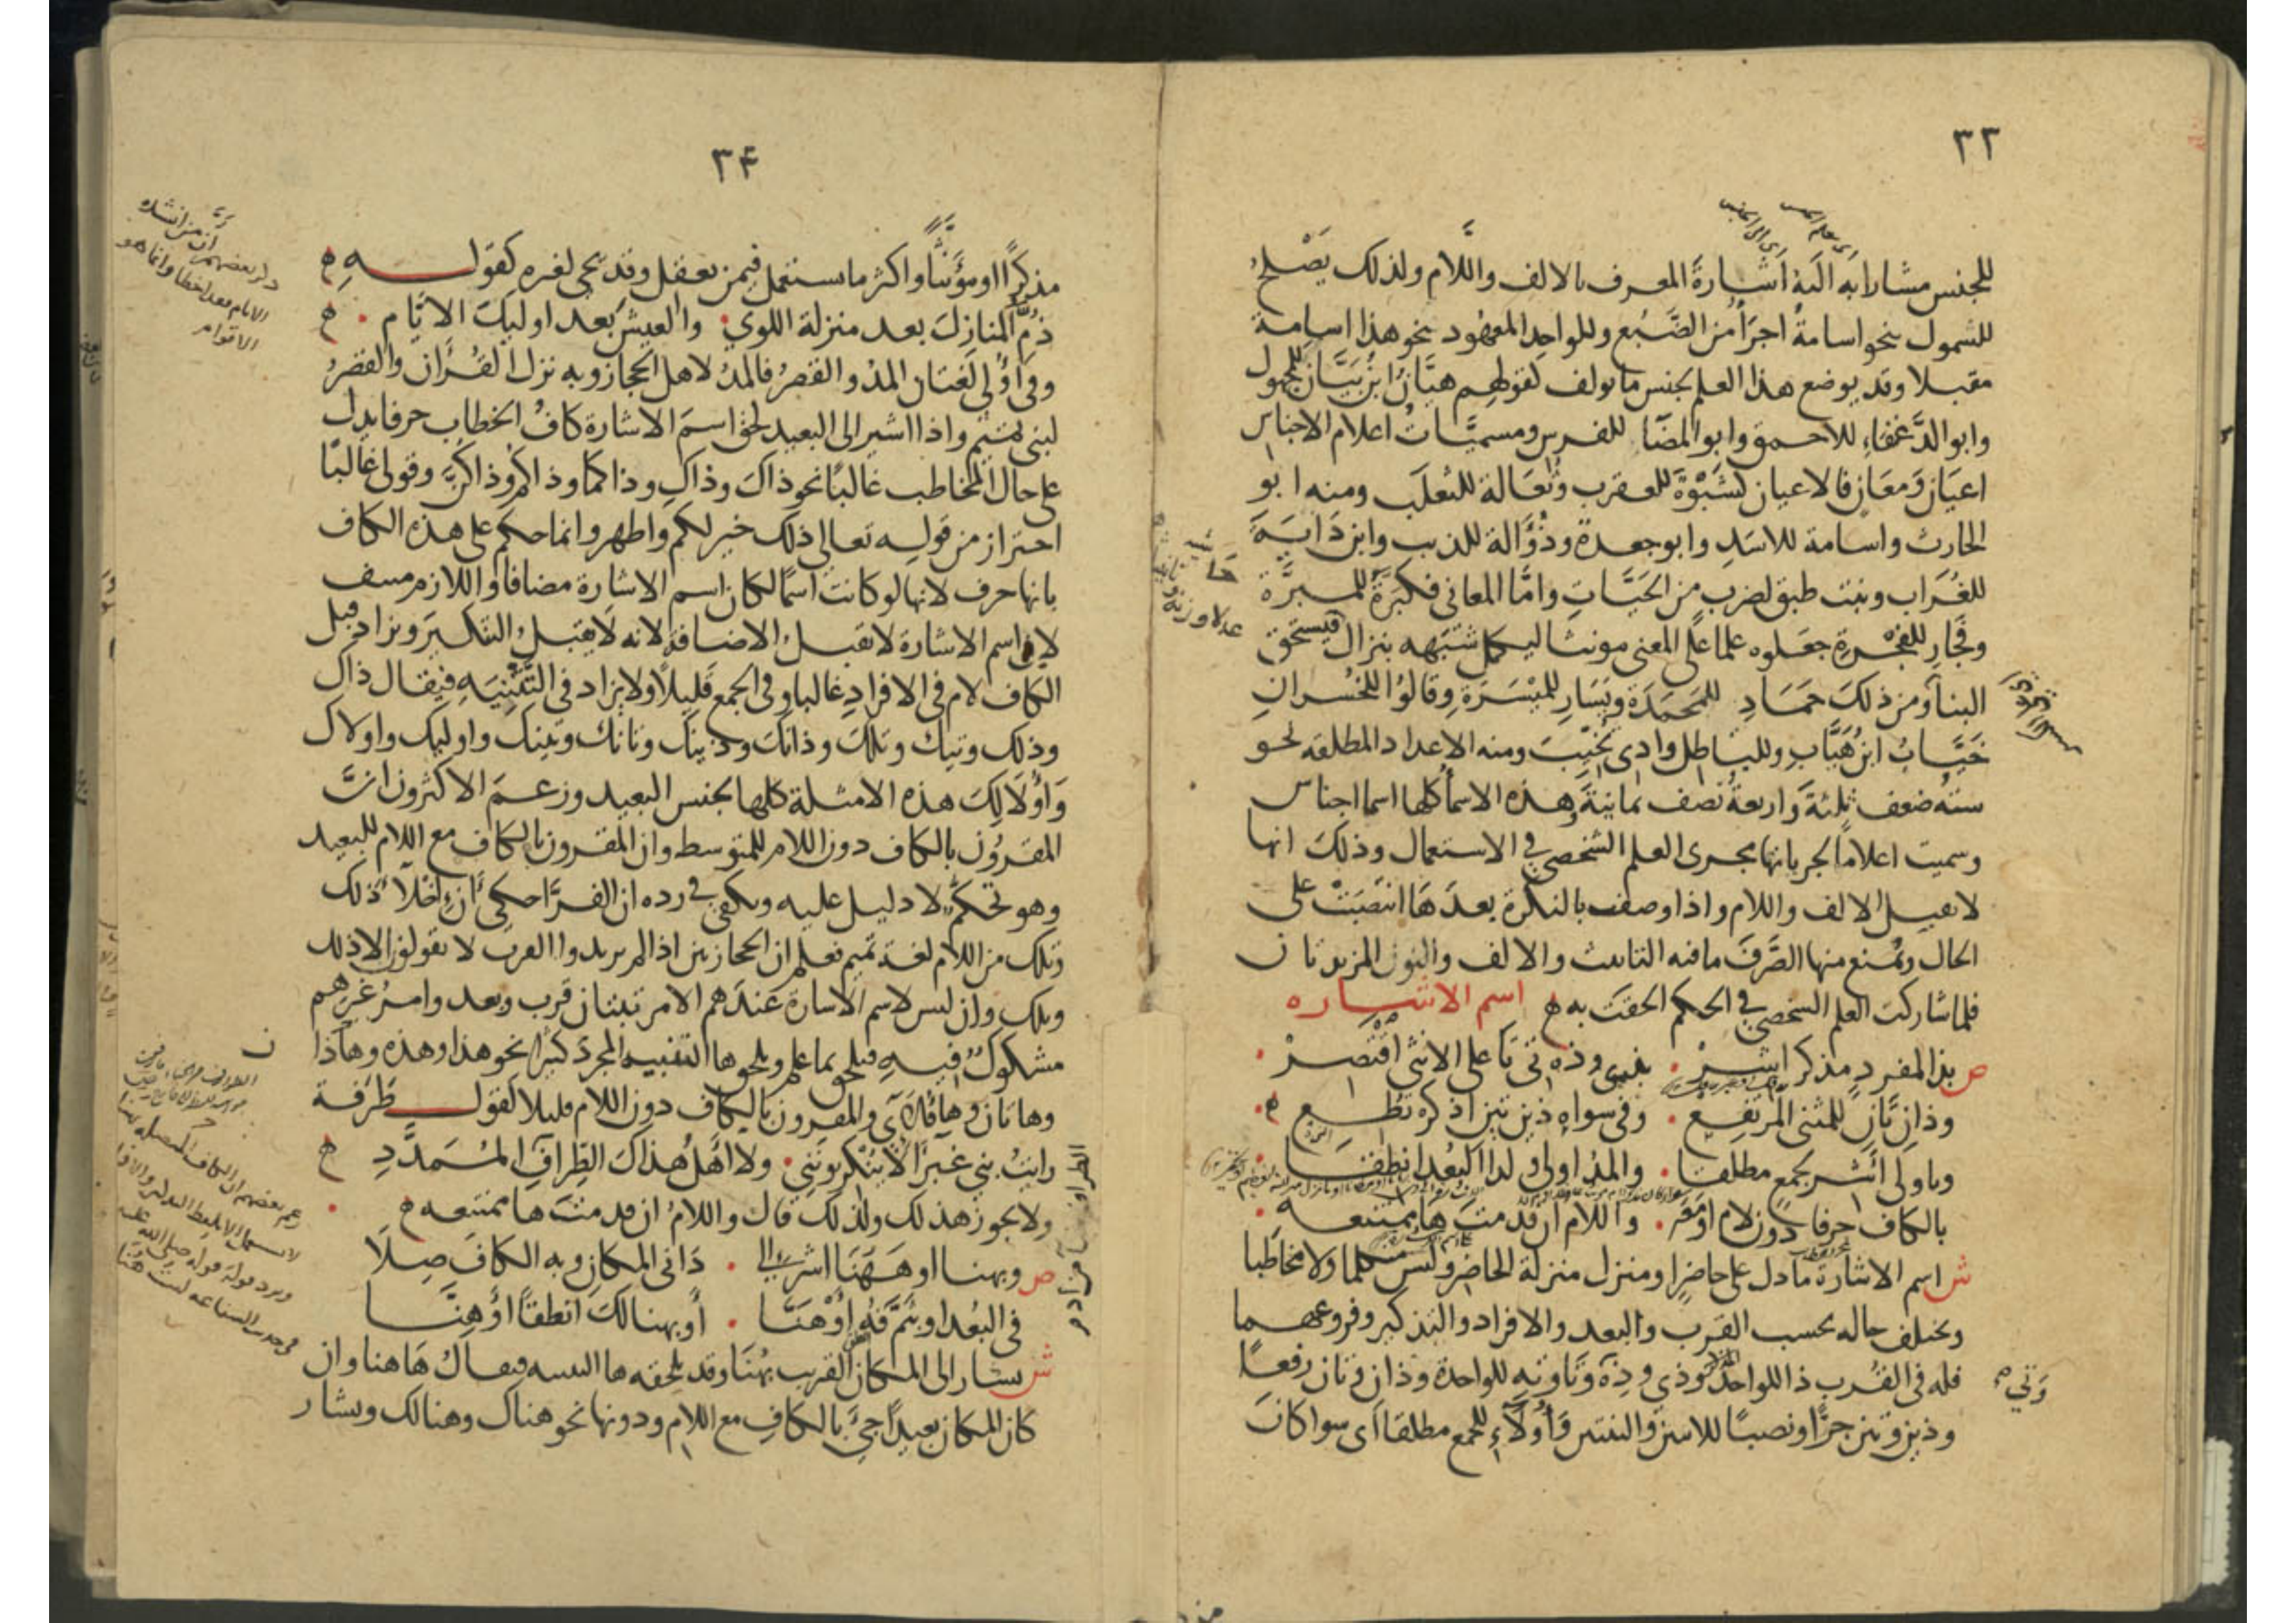 ٣٣
للجنس مشارا به اليه اشارة المعرف بالالف واللام ولذلك يصلح
للشمول نحو اسامة اجرأ من الضبع وللواحد المعهود نحو هذا اسامة
مقبلا وقد يوضع هذا العلم لجنس ما يولف كقولهم هيّان ابن بيّان للمجهول
وابو الدغفاء للاحمق وابو المضا للفرس ومسميات اعلام الاجناس
اعيان ومعان فالاعيان كشبوة للعقرب وثعالة للثعلب ومنه ابو
الحارث واسامة للاسد وابو جعدة وذؤالة للذيب وابن داية
للغراب وبنت طبق لضرب من الحيات واما المعانى فكبرّة للمبرّة
وفجار للفجرة جعلوه علما على المعنى مونثا ليكمل شبهه بنزال فيستحق
البنا ومن ذلك حماد للمحمدة ويسار للميسرة وقالوا للخسران
خيّاب ابن هيّاب وللباطل وادى تخيّب ومنه الاعداد المطلقه نحو
ستة ضعف ثلثة واربعة نصف ثمانية وهذه الاسما كلها اسما اجناس
وسميت اعلاما لجريانها مجرى العلم الشخصي في الاستعمال وذلك انها
لا تقبل الالف واللام واذا وصفت بالنكرة بعدها انتصبت على
الحال ويمنع منها الصرف ما فيه التانيث والالف والنون المزيدتان
فلما شاركت العلم الشخصي في الحكم الحقت به اسم الاشاره
ص بذا المفرد مذكر اشر . بذي وذه تى تا على الانثى اقتصر .
وذان تان للمثنى المرتفع . وفى سواه ذين تين اذكر تطع
وباولى اشر لجمع مطلقا . والمد اولى ولدا البعد انطقا
بالكاف حرفا دون لام او معه . واللام ان قدمت ها ممتنعه
ش اسم الاشارة ما دل على حاضر او منزل منزلة الحاضر وليس متكلما ولا مخاطبا
ويختلف حاله بحسب القرب والبعد والافراد والتذكير وفروعهما
فله فى القرب ذا للواحد وذي وذه وتا وته للواحدة وذان وتان رفعا
وذين وتين جرا ونصبا للاثنين والثنتين وأولاء للجمع مطلقا اى سوا كان
وتي
٣٤
مذكرا او مؤنثا واكثر ما يستعمل فيمن يعقل وقد يجى لغيره كقوله
ذم المنازل بعد منزلة اللوى . والعيش بعد اوليك الايام .
وفى أولى لغتان المد والقصر فالمد لاهل الحجاز وبه نزل القرآن والقصر
لبنى تميم واذا اشير الى البعيد لحق اسم الاشارة كاف الخطاب حرفا يدل
على حال المخاطب غالبا نحو ذاك وذاك وذاكما وذاكم وذاكن وقولى غالبا
احتراز من قوله تعالى ذلك خير لكم واطهر وانما حكم على هذه الكاف
بانها حرف لانها لو كانت اسما لكان اسم الاشارة مضافا واللازم منتف
لان اسم الاشارة لا يقبل الاضافة لانه لا يقبل التنكير ويزاد قبل
الكاف لام فى الافراد غالبا وفى الجمع قليلا ولا يزاد فى التثنيه فيقال ذاك
وذلك وتيك وتلك وذانك وذينك وتانك وتينك واوليك واولاك
وأولالك هذه الامثلة كلها لجنس البعيد وزعم الاكثرون ان
المقرون بالكاف دون اللام للمتوسط وان المقرون بالكاف مع اللام للبعيد
وهو تحكم لا دليل عليه ويكفى في رده ان الفرّا حكى ان اخلا ذلك
وتلك من اللام لغة تميم فعلم ان الحجازيين اذا لم يريدوا القرب لا يقولون الا ذلك
وتلك وان ليس لاسم الاشارة عندهم الا مرتبتان قرب وبعد وامر غيرهم
مشكوك فيه فيلحق بما علم ويلحق ها التنبيه المجرد كثيرا نحو هذا وهذه وهاذا
وهاتان وهاؤلاء والمقرون بالكاف دون اللام قليلا كقول طرفة
رايت بني غبرا لا ينكرونني . ولا اهل هذاك الطراف الممدد
ولا يجوز هذلك ولذلك قال واللام ان قدمت ها ممتنعه
ص وبهنا او ههنا اشر الى . دانى المكان وبه الكاف صلا
فى البعد او بثم فه او هنا . او بهنالك انطقا او هنا
ش يشار الى المكان القريب بهنا وقد يلحقه ها التنبيه فيقال هاهنا وان
كان المكان بعيدا جئ بالكاف مع اللام ودونها نحو هناك وهنالك ويشار